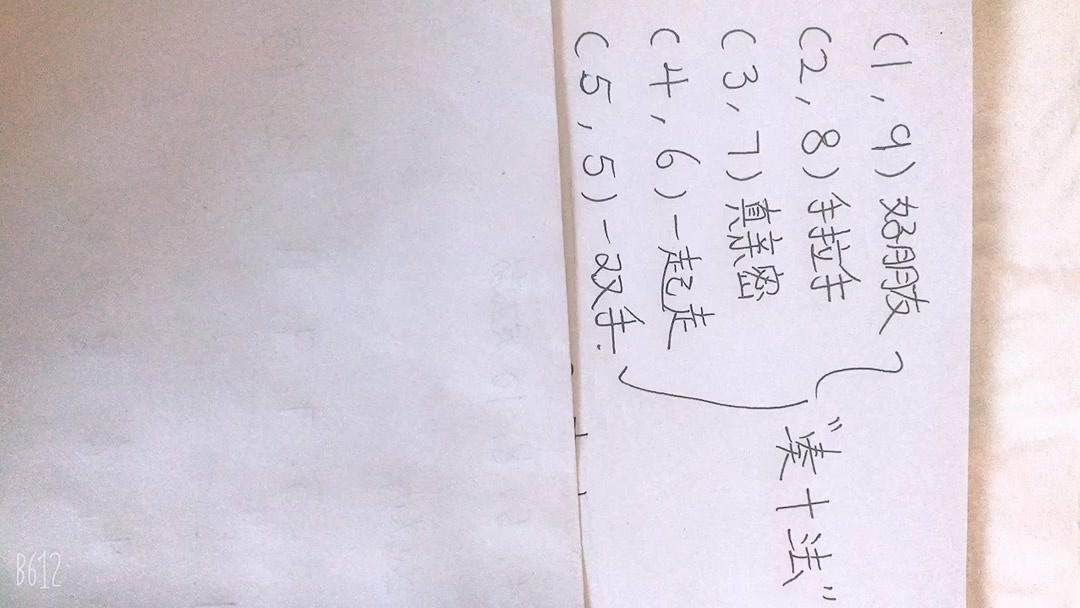 (1,9)好朋友
(2,8)手拉手
(3,7)真亲密
(4,6)一起走
(5,5)一双手.
"凑十法"
B612